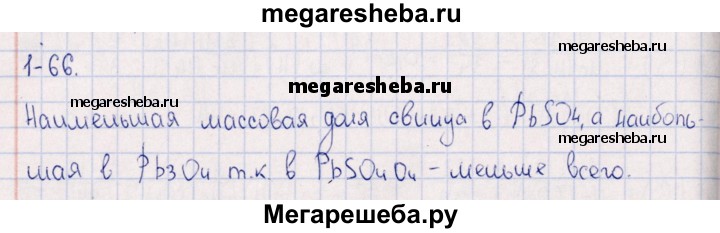 megaresheba.ru
1-66.
megaresheba.ru
megaresheba.ru
megaresheba.ru
Наименьшая массовая доля свинца в PbSO4, а наиболь-
megaresheba.ru
шая в Pb3O4 т.к. в PbSO4O4 - меньше всего.
Мегарешеба.ру